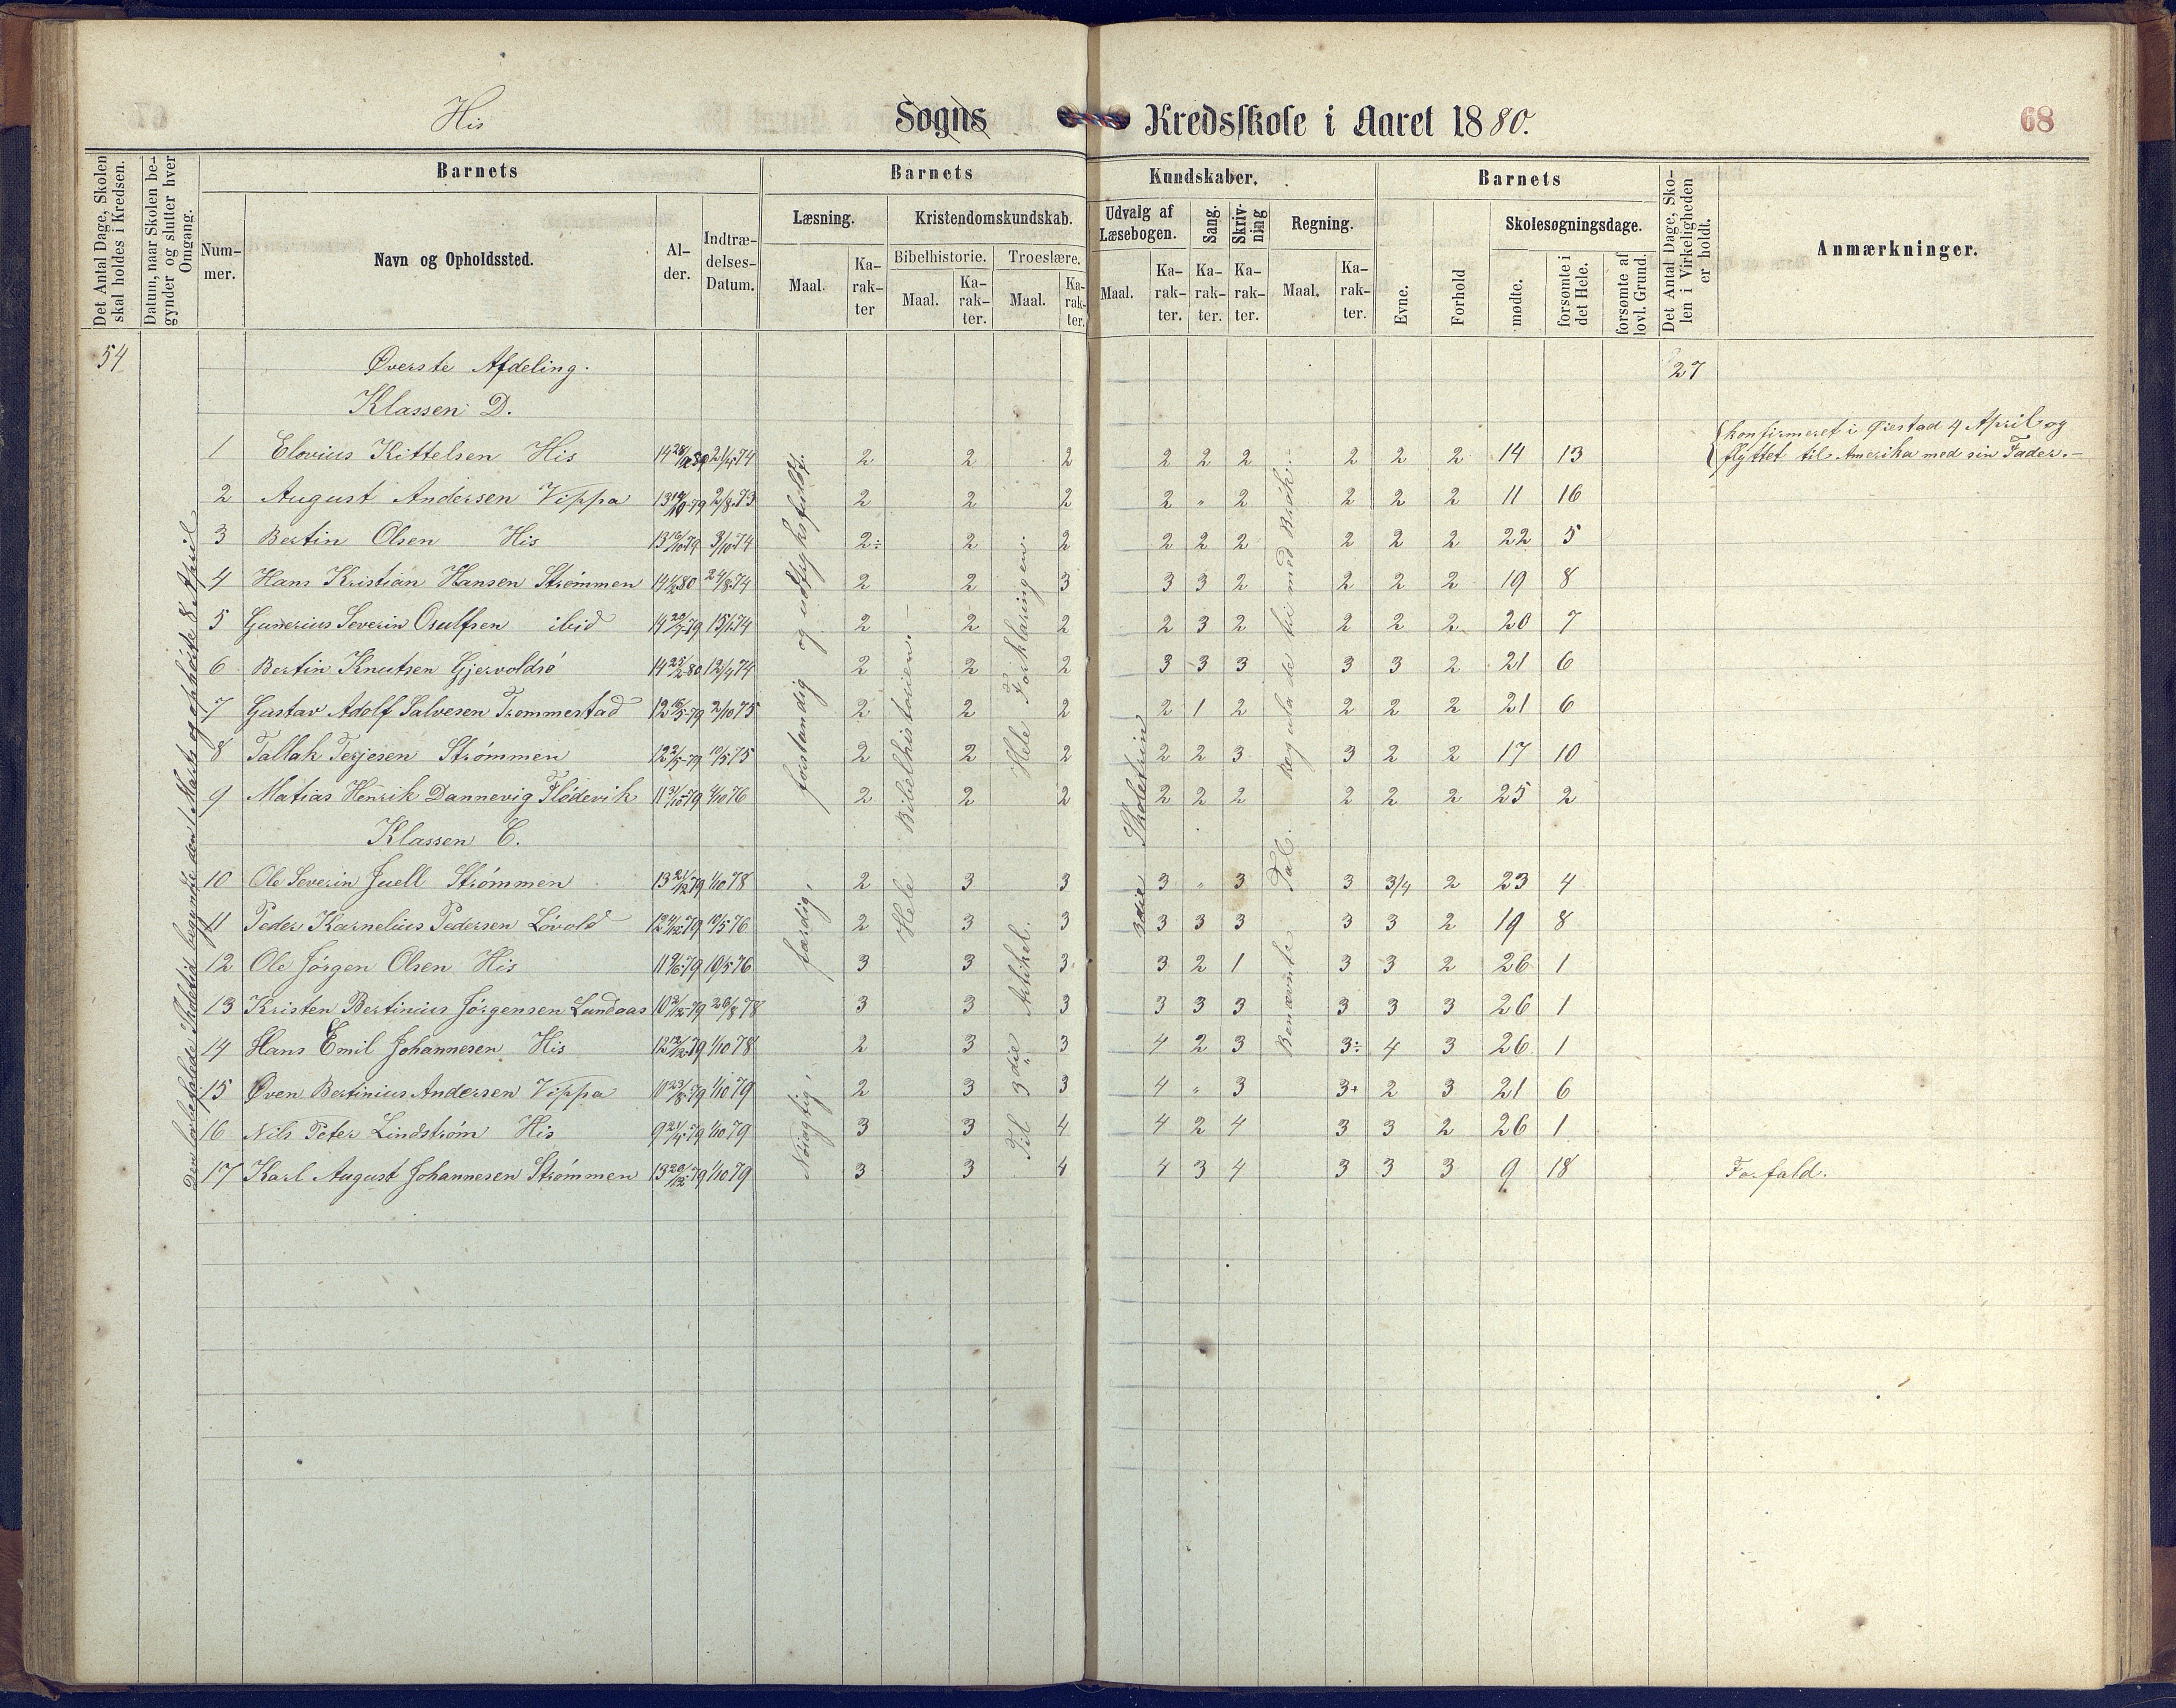 His Sogns Kredsskole i Aaret 1880. 68
Det Antal Dage, Skolen skal holdes i Kredsen.
Datum, naar Skolen begynder og slutter hver Omgang.
Barnets
Nummer.
Navn og Opholdssted.
Alder.
Indtrædelses-Datum.
Barnets Kundskaber.
Læsning.
Maal.
Karakter
Kristendomskundskab.
Bibelhistorie.
Maal.
Karakter.
Troeslære.
Maal.
Karakter.
Udvalg af Læsebogen.
Maal.
Karakter.
Sang.
Karakter.
Skrivning
Karakter.
Regning.
Maal.
Karakter.
Barnets
Evne.
Forhold
Skolesøgningsdage.
mødte.
forsømte i det Hele.
forsømte af lovl. Grund.
Det Antal Dage, Skolen i Virkeligheden er holdt.
Anmærkninger.
54 Øverste Afdeling. 27
Klassen D.
1 Elovius Kittelsen His 2 2 2 2 2 2 2 2 2 14 13 konfirmeret i Øiestad 4 April og
flyttet til Amerika med sin Fader.-
2 August Andersen Vippa 2/8 73 2 2 2 2 " 2 2 2 2 11 16
3 Bertin Olsen His 3/10 74 2÷ 2 2 2 2 2 2 2 2 22 5
4 Hans Kristian Hansen Strømmen 24/8 74 2 2 3 3 3 2 2 2 2 19 8
5 Gunerius Severin Osulfsen ibid 2 2 2 2 3 2 2 2 2 20 7
6 Bertin Knutsen Gjervoldsø 12/4 74 2 2 2 3 3 3 3 3 2 21 6
7 Gustav Adolf Salvesen Trommestad 2/10 75 2 2 2 2 1 2 2 2 2 21 6
8 Tallak Terjesen Strømmen 10/5 75 2 2 2 2 2 3 3 2 2 17 10
9 Matias Henrik Dannevig Flødevik 2 2 2 2 2 2 2 2 2 25 2
Klassen C.
10 Ole Severin Juell Strømmen 1/10 78 2 3 3 3 " 3 3 3/4 2 23 4
11 Peder Karnelius Pedersen Løvold 10/5 76 2 3 3 3 3 3 3 3 2 19 8
12 Ole Jørgen Olsen His 10/5 76 3 3 3 3 2 1 3 3 2 26 1
13 Kristen Bertinius Jørgensen Lundaas 3 3 3 3 3 3 3 3 3 26 1
14 Hans Emil Johannesen His 1/10 78 2 3 3 4 2 3 3÷ 4 3 26 1
15 Øven Bertinius Andersen Vippa 1/10 79 2 3 3 4 " 3 3+ 2 3 21 6
16 Nils Peter Lindstrøm His 1/10 79 3 3 4 4 2 4 3 3 2 26 1
17 Karl August Johannesen Strømmen 1/10 79 3 3 4 4 3 4 3 3 3 9 18 Forfald.
Den lovbefalede Skoletid begyndte den 1 Marts og ophørte 8 April
Nøiagtig, færdig, forstandig og udtryksfuldt.
Hele Bibelhistorien.
Til 3die Artikkel. Hele Forklaringen.
3die Skoletrin
Benævnte Tal. Regula de tri med Brøk.